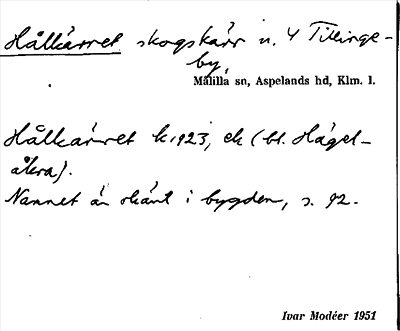 Hålkärret skogskärr n. Y Tillinge-
by,
Målilla sn, Aspelands hd, Klm. l.
Hålkärret k 1923, ek (bl. Hägel-
åkra).
Namnet är okänt i bygden, s. 92.
Ivar Modéer 1951